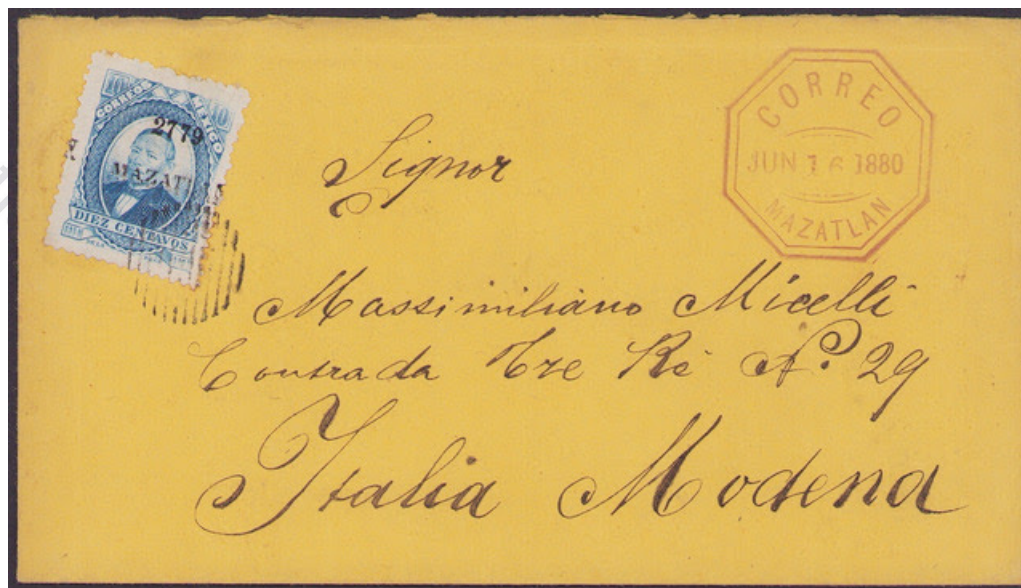 10
CORREOS MEXICO
2779
MAZATLAN
DIEZ CENTAVOS
CORREO
JUN 16 1880
MAZATLAN
Signor
Massimiliano Micelli
Contrada Tre Rè Nº. 29
Italia Modena